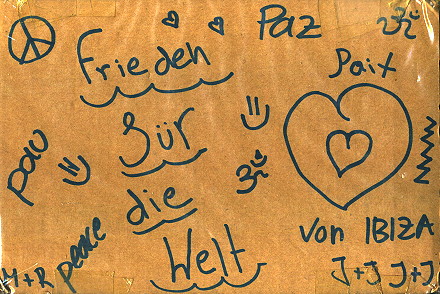 Paz
ॐ
Frieden
Paix
für
pau
ॐ
die
peace
von IBIZA
Welt
M+R
J+J J+J